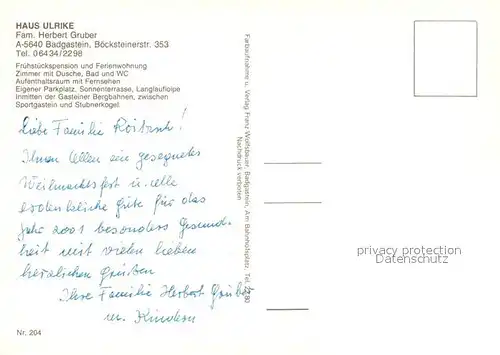 HAUS ULRIKE
Fam. Herbert Gruber
A-5640 Badgastein, Böcksteinerstr. 353
Tel. 06434/2298
Frühstückspension und Ferienwohnung
Zimmer mit Dusche, Bad und WC
Aufenthaltsraum mit Fernsehen
Eigener Parkplatz, Sonnenterrasse, Langlaufloipe
Inmitten der Gasteiner Bergbahnen, zwischen
Sportgastein und Stubnerkogel.
Liebe Familie
Ihnen Allen ein gesegnetes
Weihnachtsfest u. alle
erdenkliche Gute für das
Jahr 2001 besonders Gesund-
heit mit vielen lieben
herzlichen Grüßen
Ihre Familie Herbert Gruber
u. Kindern
Nr. 204
Farbaufnahme u. Verlag Franz Wolfsbauer, Badgastein, Am Bahnhofplatz, Tel. 22 80
Nachdruck verboten
privacy protection
Datenschutz